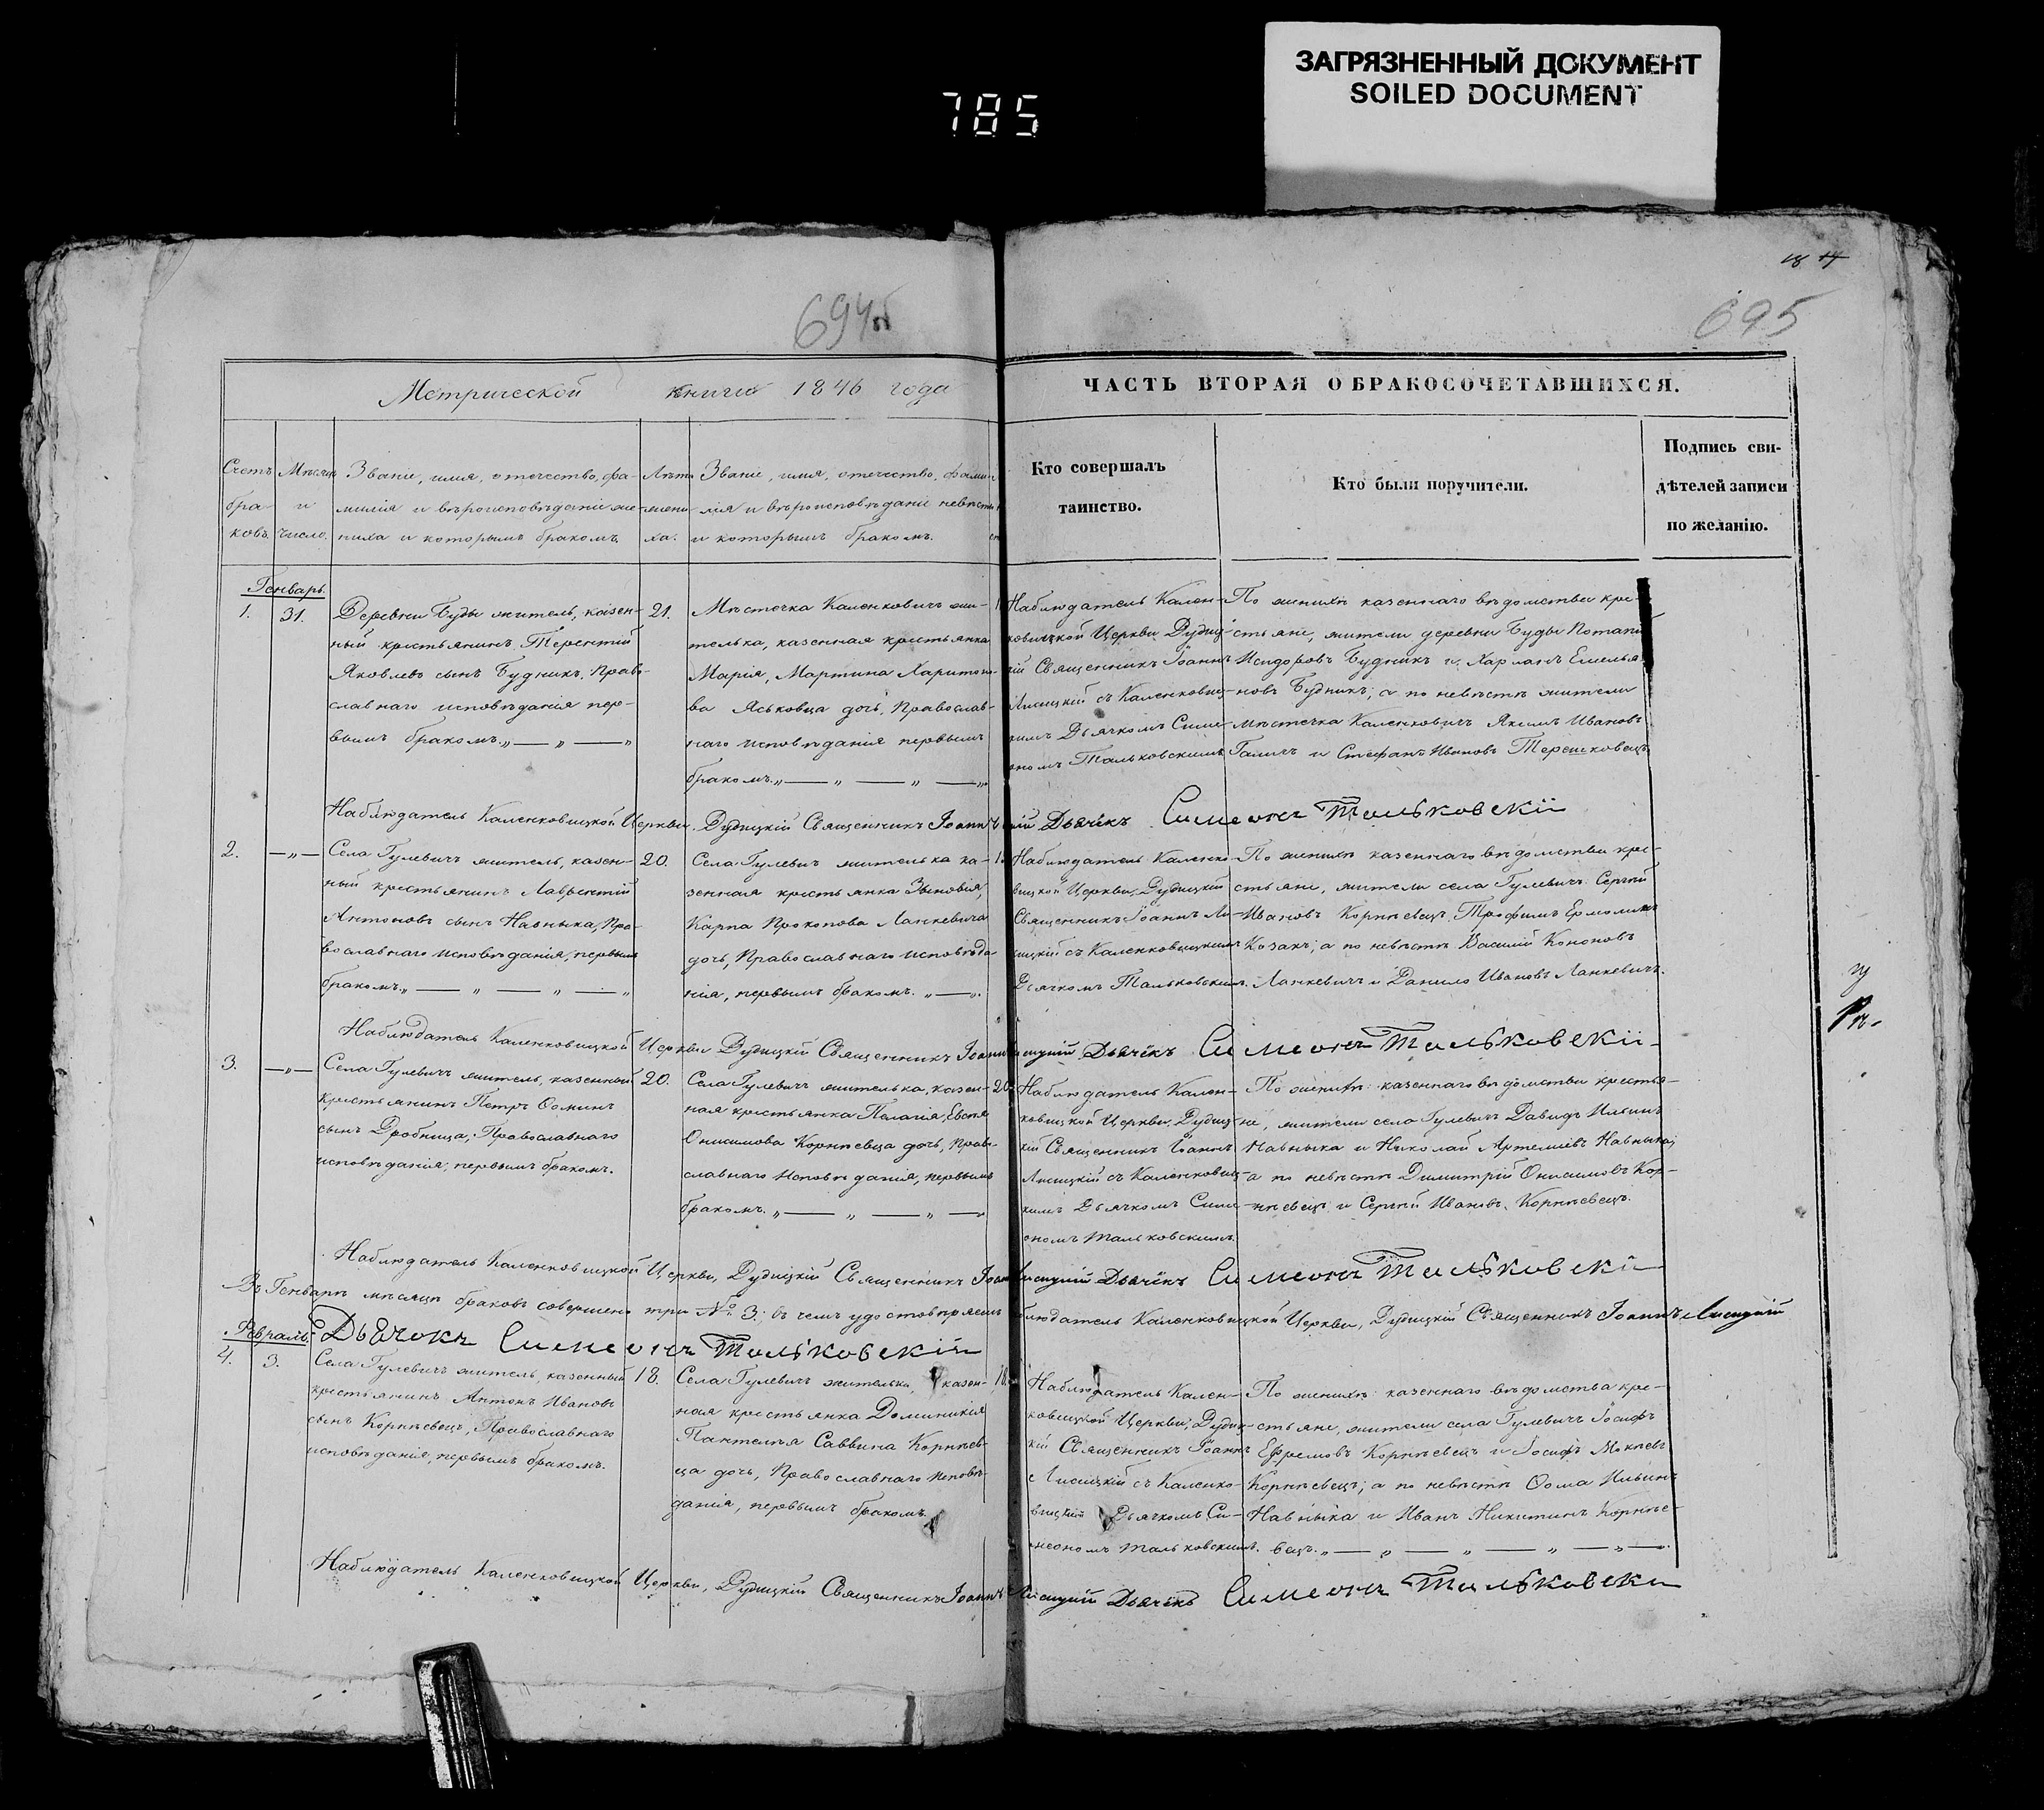 ЗАГРЯЗНЕННЫЙ ДОКУМЕНТ
SOILED DOCUMENT
785
18 17
694б
695
Метрической книги 1846 года
Счетъ браковъ.
Мѣсяцъ и число.
Званіе, имя, отечество, фа-
милія и вѣроисповѣданіе же-
ниха и которымъ бракомъ.
Лѣта
жени-
ха.
Званіе, имя, отечество, фами-
лія и вѣроисповѣданіе невѣсты
и которымъ бракомъ.
ЧАСТЬ ВТОРАЯ О БРАКОСОЧЕТАВШИХСЯ.
Кто совершалъ
таинство.
Кто были поручители.
Подпись сви-
дѣтелей записи
по желанію.
Генварь.
1.
31.
Деревни Буды житель, казен-
ный крестьянинъ Терентій
Яковлевъ сынъ Будникъ, Право-
славнаго исповѣданія пер-
вымъ бракомъ. „ — „ — „
21.
Мѣстечка Каленковичъ жи-
телька, казенная крестьянка
Марія, Мартина Харитоно-
ва Яськовца дочь, Православ-
наго исповѣданія первымъ
бракомъ. „ — „ — „ — „
Наблюдатель Кален-
ковицкой Церкви Дудиц-
кій Священникъ Іоаннъ
Лисицкій съ Каленковиц-
кимъ Дьячкомъ Симе-
ономъ Тальковскимъ
По женихѣ казеннаго вѣдомства кре-
стьяне, жители деревни Буды Потапій
Исидоровъ Будникъ и Харланъ Емелья-
новъ Будникъ; а по невѣстѣ жители
мѣстечка Каленковичъ Якимъ Ивановъ
Галичъ и Стефанъ Ивановъ Терешковецъ
Наблюдатель Каленковицкой Церкви Дудицкій Священникъ Іоаннъ Дьячёкъ Симеонъ Тальковскій
2.
— „ —
Села Гулевичъ житель, казен-
ный крестьянинъ Лаврентій
Антоновъ сынъ Навныка, Пра-
вославнаго исповѣданія, первымъ
бракомъ. „ — „ — „ — „
20.
Села Гулевичъ жителька ка-
зенная крестьянка Зѣновія,
Карпа Прокопова Ланкевича
дочь, Православнаго исповѣда-
нія, первымъ бракомъ. „ — „.
Наблюдатель Каленко-
вицкой Церкви, Дудицкій
Священникъ Іоаннъ Ли-
сицкій съ Каленковицкимъ
Дьячкомъ Тальковскимъ.
По женихѣ казеннаго вѣдомства крес-
стьяне, жители села Гулевичъ: Сергій
Ивановъ Корнѣевецъ, Трофимъ Ермолинъ
Козакъ; а по невѣстѣ Василій Кононовъ
Ланкевичъ и Данило Ивановъ Ланкевичъ.
Наблюдатель Каленковицкой Церкви Дудицкій Священникъ Іоаннъ Лисицкій Дьячёкъ Симеонъ Тальковскій
3.
— „ —
Села Гулевичъ житель, казенный
крестьянинъ Петръ Ѳоминъ
сынъ Дробница, Православнаго
исповѣданія, первымъ бракомъ.
20.
Села Гулевичъ жителька, казен-
ная крестьянка Пелагія, Евсея
Онисимова Корнѣевца дочь, Право-
славнаго Исповѣданія, первымъ
бракомъ. „ — „ — „ — „
20.
Наблюдатель Кален-
ковицкой Церкви, Дудиц-
кій Священникъ Іоаннъ
Лисицкій съ Каленковиц-
кимъ Дьячкомъ Симе-
ономъ Тальковскимъ.
По женихѣ: казеннаго вѣдомства крестья-
не, жители села Гулевичъ Давидъ Ильинъ
Навныка и Николай Артеміевъ Навныка;
а по невѣстѣ Димитрій Онисимовъ Кор-
нѣевецъ и Сергій Ивановъ Корнѣевецъ.
Наблюдатель Каленковицкой Церкви, Дудицкій Священникъ Іоаннъ Лисицкій Дьячёкъ Симеонъ Тальковскій
Въ Генварѣ мѣсяцѣ браковъ совершено три № 3: въ чемъ удостовѣряемъ Наблюдатель Каленковицкой Церкви, Дудицкій Священникъ Іоаннъ Лисицкій
Дьячокъ Симеонъ Тальковскій
Февраль.
4.
3.
Села Гулевичъ житель, казенный
крестьянинъ Антонъ Ивановъ
сынъ Корнѣевецъ, Православнаго
исповѣданія, первымъ бракомъ.
18.
Села Гулевичъ жителька, казен-
ная крестьянка Доминикія
Пантелѣя Саввина Корнѣев-
ца дочь, Православнаго Исповѣ-
данія, первымъ бракомъ.
18.
Наблюдатель Кален-
ковицкой Церкви, Дудиц-
кій Священникъ Іоаннъ
Лисицкій съ Каленко-
вицкимъ Дьячкомъ Си-
меономъ Тальковскимъ.
По женихѣ: казеннаго вѣдомства кре-
стьяне, жители села Гулевичъ Іосифъ
Ефремовъ Корнѣевецъ и Іосифъ Мокѣевъ
Корнѣевецъ; а по невѣстѣ Ѳома Ильинъ
Навныка и Иванъ Никитинъ Корнѣе-
вецъ. „ — „ — „ — „ — „ — „
Наблюдатель Каленковицкой Церкви, Дудицкій Священникъ Іоаннъ Лисицкій Дьячёкъ Симеонъ Тальковскі